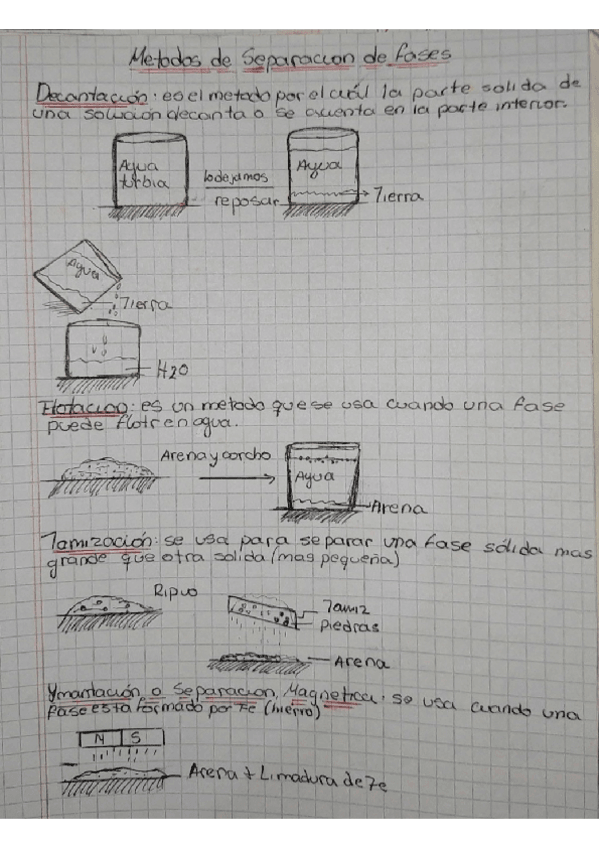 Metodos de Separacion de Fases
Decantación: es el metodo por el cuál la parte solida de
una solucion decanta o se acienta en la parte interior.
Agua
turbia
lo dejamos
reposar
Agua
Tierra
Agua
Tierra
H2O
Flotacion: es un metodo que se usa cuando una fase
puede flotr en agua.
Arena y corcho
Agua
Arena
Tamización: se usa para separar una fase sólida mas
grande que otra solida (mas pequeña)
Ripuo
Tamiz
piedras
Arena
Ymantación o Separacion Magnetica: se usa cuando una
fase esta formado por Fe (hierro)
N S
Arena + Limadura de Fe